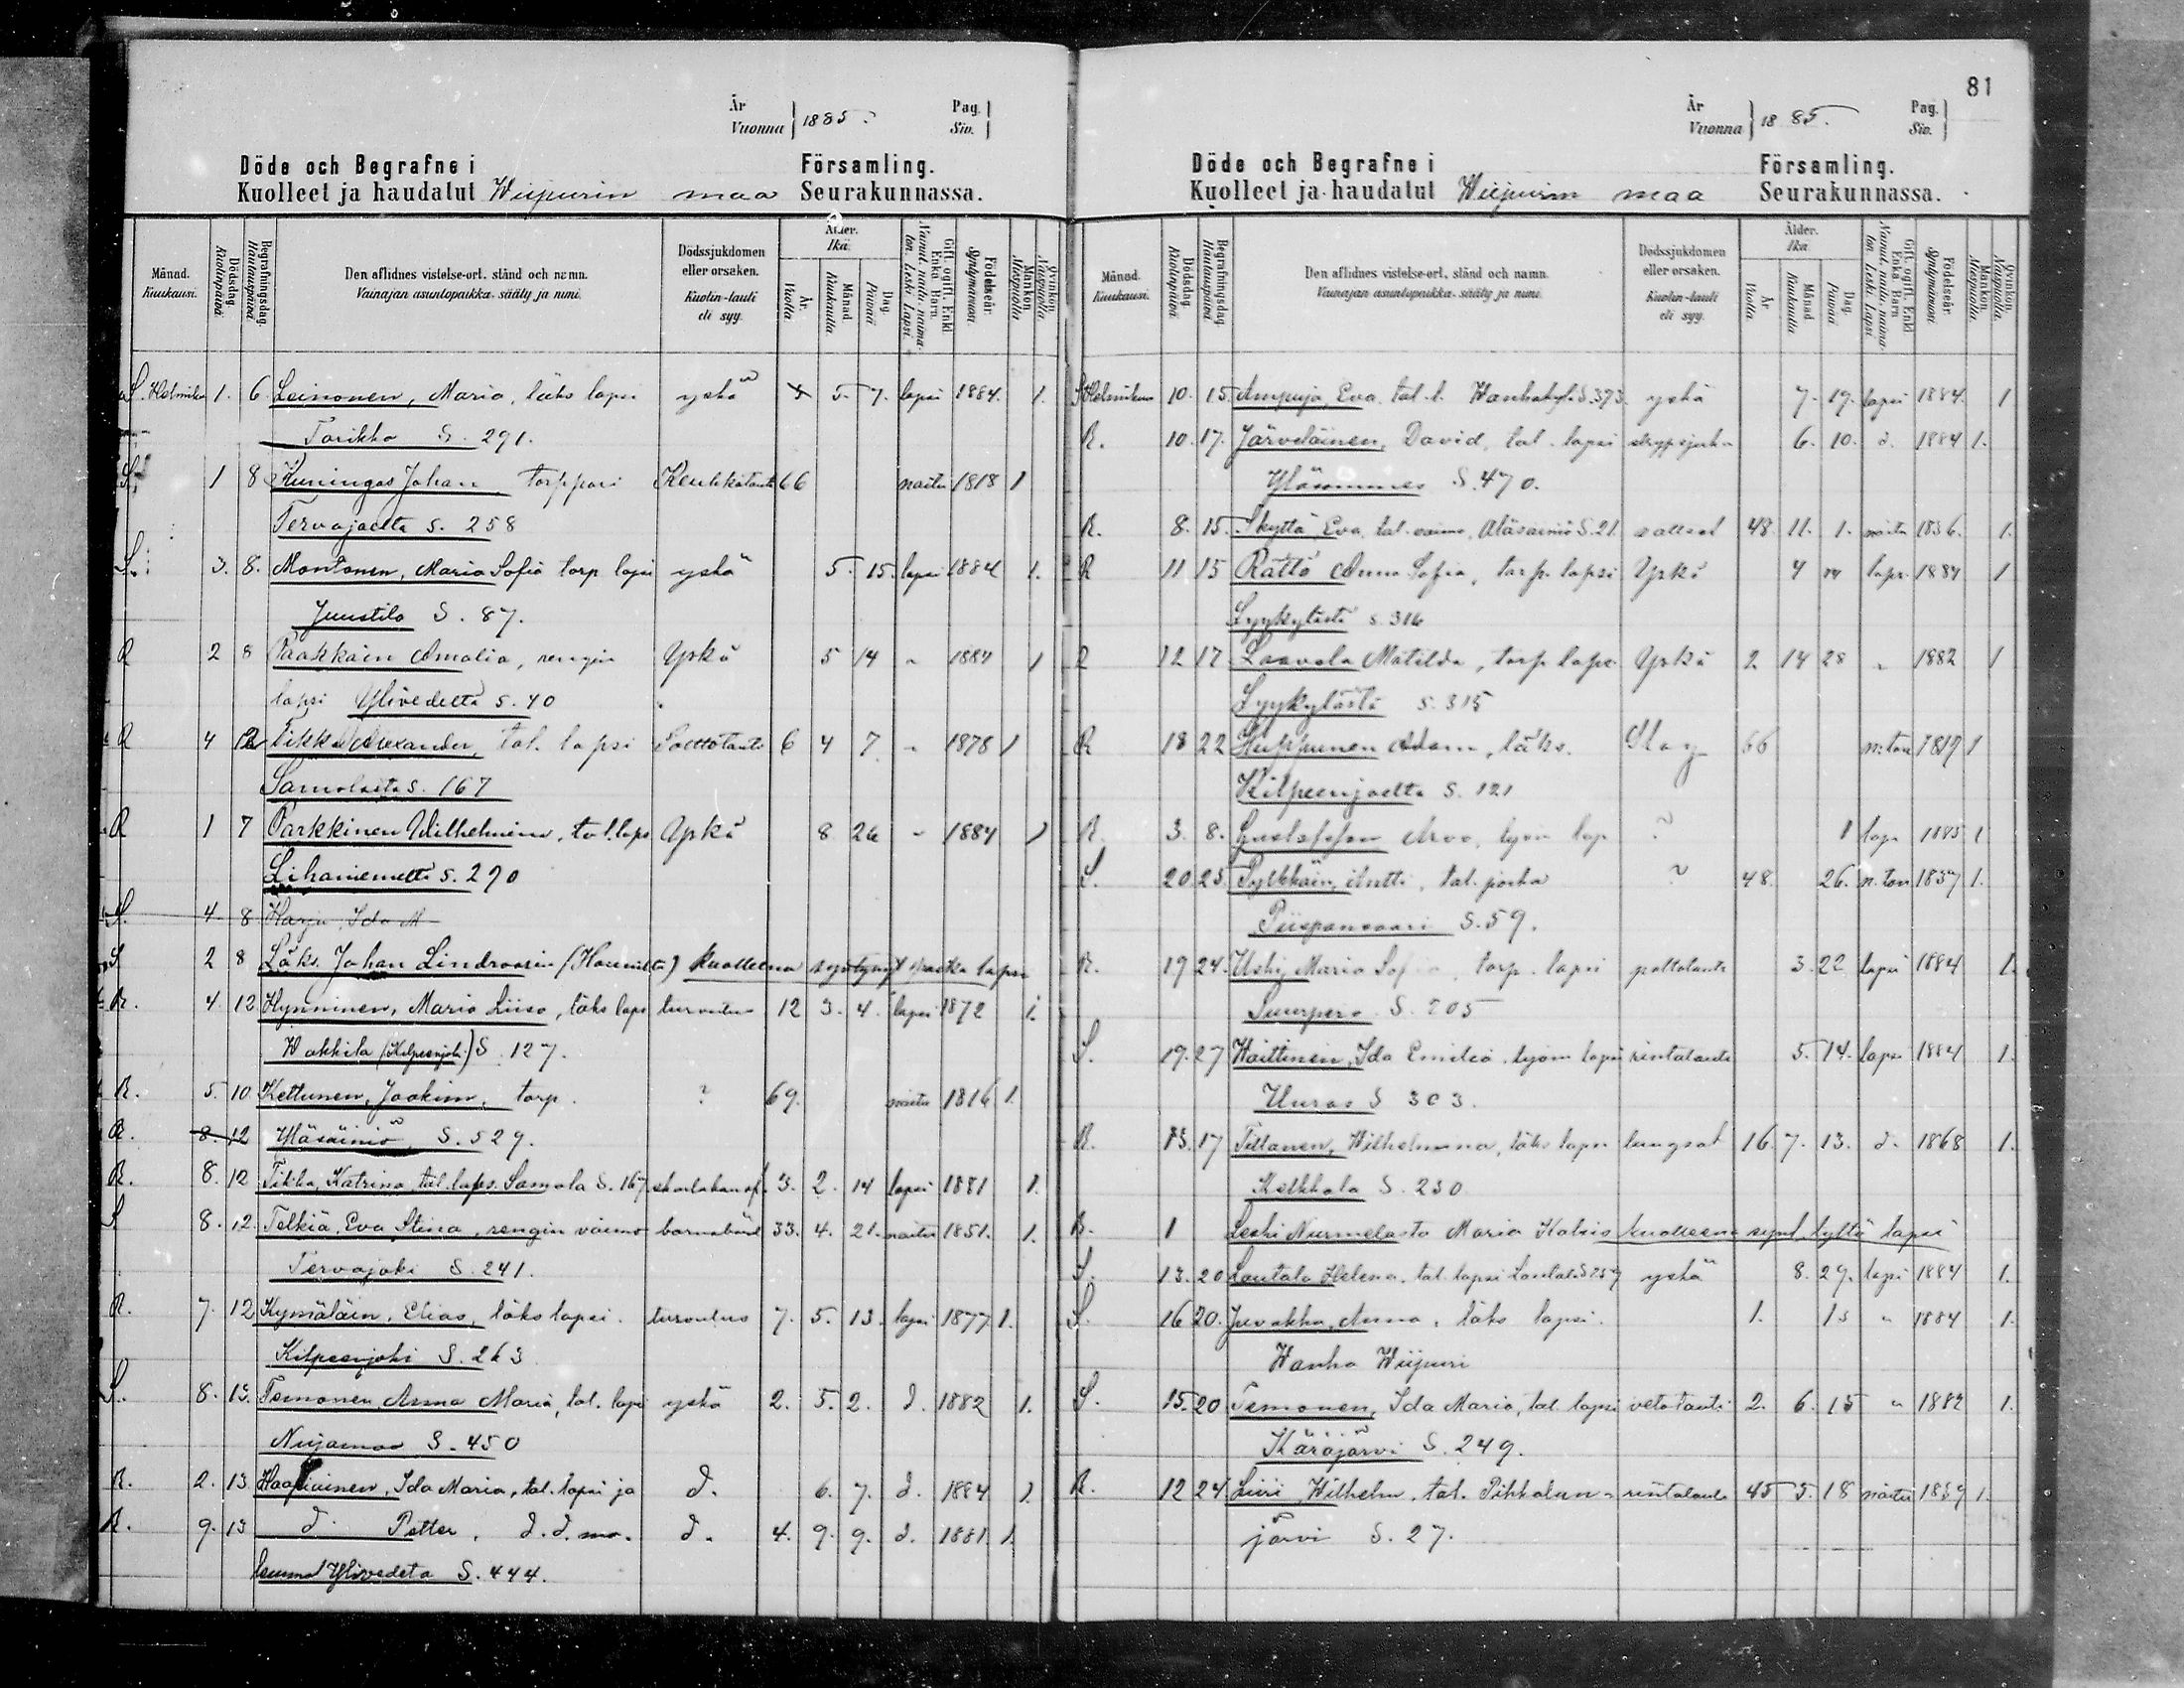 År
Vuonna } 1885.
Pag.
Siv.
Döde och Begrafne i Församling.
Kuolleet ja haudatut Wiipurin maa Seurakunnassa.
Månad.
Kuukausi.
Dödsdag.
Kuolinpäivä.
Begrafningsdag.
Hautauspäivä.
Den aflidnes vistelse-ort, stånd och namn.
Vainajan asuntopaikka, sääty ja nimi.
Dödssjukdomen
eller orsaken.
Kuolin-tauti
eli syy.
Ålder.
Ikä.
År.
Vuotta.
Månad.
Kuukautta.
Dag.
Päivää
Gift, ogift, Enkl.
Enka, Barn.
Nainut, naitu, naima-
ton, Leski, Lapsi.
Födelseår.
Syntymävuosi.
Mankön.
Miespuolia
Qvinkön.
Naispuolia.
S. Helmiku 1. 6. Leinonen, Maria, läks lapsi yskä 5. 7. lapsi 1884. 1.
Tarikka S. 291.
S. 1 8 Kuningas Johan, torppari Keuhkotauti 66 naitu 1818 1
Tervajoelta s. 258
S. 3. 8. Montonen, Maria Sofia torp lapsi yskä 5. 15. lapsi 1884 1.
Juustila S. 87.
R 2 8 Paakkain Amalia, rengin Yskä 5 14 " 1884 1
lapsi Ylivedeltä s. 40
R 4 12 Tikka Alexander, tal. lapsi 6 4 7 " 1878 1
Samolasta s. 167
R 1 7 Parkkinen Wilhelmina, tal. laps Yskä 8 26 " 1884 1
Lihaniemeltä s. 290
S. 4 8 Harju, Ida M
S 2 8 Läks. Johan Lindroosin kuolleena syntynyt lapsi
R. 4. 12 Hynninen, Maria Liisa, läks laps turvotus 12 3. 4. lapsi 1872 1.
Wakkila (Kilpeenjoki) S. 127.
R. 5. 10. Kettunen, Joakim, torp. ? 69. naitu 1816 1.
R. 8. 12 Yläsäiniö, S. 529.
R. 8. 12 Tikka, Katrina, tal. laps. Samola S. 167 3. 2. 14 lapsi 1881 1.
S 8. 12. Telkiä, Eva Stina, rengin vaimo barnsbörd 33. 4. 21. naitu 1851. 1.
Tervajoki S. 241.
R. 7. 12 Kymäläin, Elias, läks lapsi. turvotus 7. 5. 13. lapsi 1877 1.
Kilpeenjoki S. 263
S. 8. 13. Temonen Anna Maria, tal. lapsi yskä 2. 5. 2. d. 1882 1.
Nuijamaa S. 450
R. 2. 13. Haapiainen, Ida Maria, tal. lapsi ja d. 6. 7. d. 1884 1.
R. 9. 13 d. Petter, d. d. d. 4. 9. 9. d. 1881 1.
Ylivedeta S. 444.
81
År
Vuonna } 1885.
Pag.
Siv.
Döde och Begrafne i Församling.
Kuolleet ja haudatut Wiipurin maa Seurakunnassa.
Månad.
Kuukausi.
Dödsdag.
Kuolinpäivä.
Begrafningsdag.
Hautauspäivä.
Den aflidnes vistelse-ort, stånd och namn.
Vainajan asuntopaikka, sääty ja nimi.
Dödssjukdomen
eller orsaken.
Kuolin-tauti
eli syy.
Ålder.
Ikä.
År
Vuotta
Månad
Kuukautta
Dag.
Päivää
Gift, ogift, Enkl
Enka, Barn
Nainut, naitu, naima-
ton, Leski, Lapsi.
Födelseår.
Syntymävuosi.
Mankön.
Miespuolia.
Qvinkön.
Naispuolia.
S Helmikuu 10. 15. Ampuja, Eva, tal. l. Wanhakyl. S. 373. yskä 7. 19. lapsi 1884. 1
R. 10. 17. Järveläinen, David, tal. lapsi 6. 10. d. 1884 1.
Yläsommee S. 470.
R. 8. 15. Skyttä Eva, tal. vaimo, Alasäiniö S. 21. 48. 11. 1. naitu 1836. 1.
R 11 15 Rättö Anna Sofia, torp. lapsi Yskä 4 laps. 1884 1
Lyykylästä s. 316
R 12 17 Laavola Matilda, torp. laps. Yskä 2 14 28 " 1882 1
Lyykylästä s. 315
R 18 22 Huppunen Adam, läks. 66 n:ton 1819 1
Kilpeenjoelta s. 121
R. 3. 8. Gustafsson Arvo, työm lap ? 1 laps 1885 1
S. 20. 25. Pylkkäin, Antti, tal. poika ? 48 26. n. ton 1837 1.
Piispansaari S. 59.
R. 19 24. Uski, Maria Sofia, torp. lapsi polttotauti 3. 22 lapsi 1884 1.
Suurpero S. 205
S. 19. 27 Waittinen, Ida Emilia, työm lapsi rintatauti 5. 14. lapsi 1884 1.
Uuras S 303.
R. 13. 17 Tiltanen, Wilhelmina, läks lapsi lungsot 16. 7. 13. d. 1868 1.
Kelkkala S. 230
R. 1 Leski Nurmelasta Maria kuolleena synt. tyttö lapsi
S. 13. 20 Lautala Helena, tal. lapsi yskä 8. 29. lapsi 1884 1.
S. 16 20. Juvakka, Anna, läks lapsi. 1. 15 " 1884 1.
Wanha Wiipuri
S. 15. 20 Temonen, Ida Maria, tal. lapsi vetotauti 2. 6. 15 " 1882 1.
Käräjärvi S. 249.
R. 12 24 Liiri Wilhelm, tal. Pihkalan- rintatauti 45 5. 18 naitu 1839 1.
järvi S. 27.